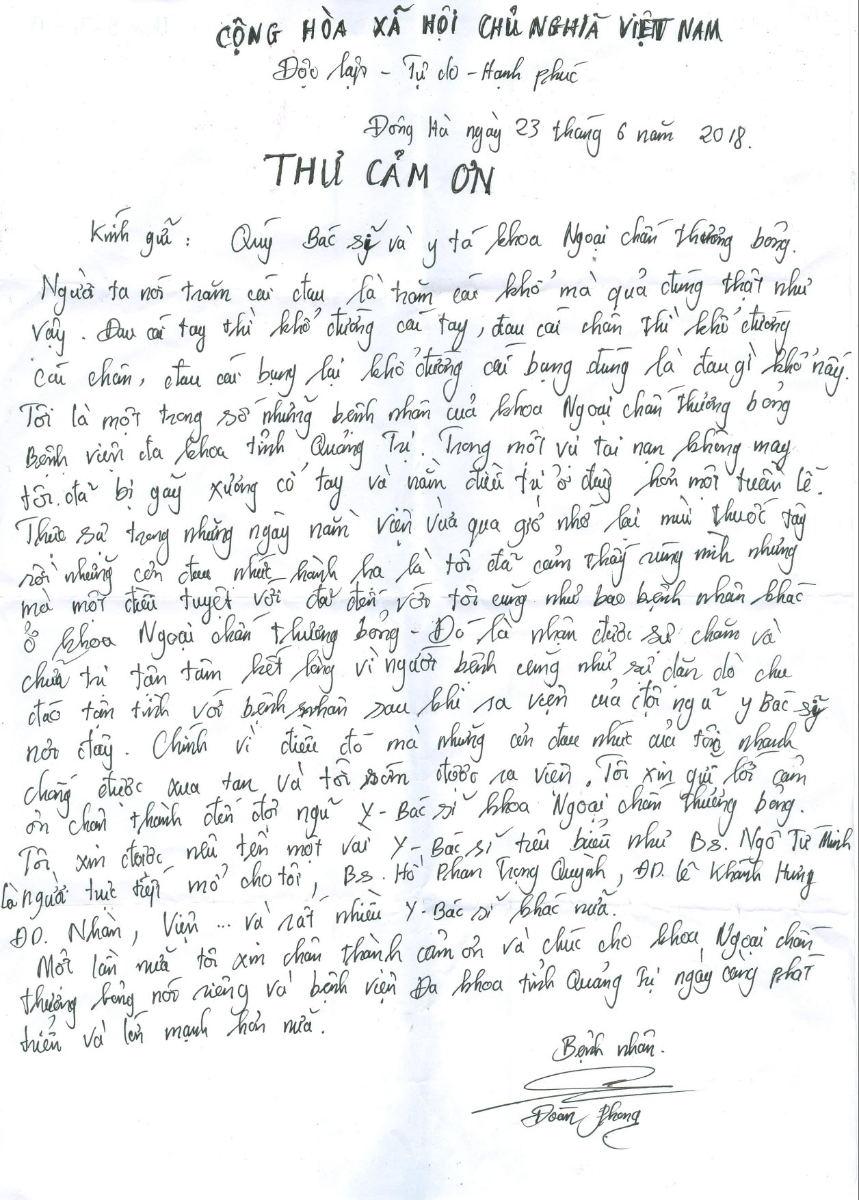 CỘNG HÒA XÃ HỘI CHỦ NGHĨA VIỆT NAM
Độc lập - Tự do - Hạnh phúc
Đông Hà ngày 23 tháng 6 năm 2018.
THƯ CẢM ƠN
Kính gửi : Quý Bác sỹ và y tá khoa Ngoại chấn thương bỏng.
Người ta nói trăm cái đau là trăm cái khổ mà quả đúng thật như
vậy. Đau cái tay thì khổ đường cái tay, đau cái chân thì khổ đường
cái chân, đau cái bụng lại khổ đường cái bụng đúng là đau gì khổ nấy.
Tôi là một trong số những bệnh nhân của khoa Ngoại chấn thương bỏng
Bệnh viện đa khoa tỉnh Quảng Trị. Trong một vụ tai nạn không may
tôi đã bị gãy xương cổ tay và nằm điều trị ở đây hơn một tuần lễ.
Thực sự trong những ngày nằm viện vừa qua giờ nhớ lại mùi thuốc tây
rồi những cơn đau nhức hành hạ là tôi đã cảm thấy rùng mình nhưng
mà một điều tuyệt vời đã đến với tôi cũng như bao bệnh nhân khác
ở khoa Ngoại chấn thương bỏng - Đó là nhận được sự chăm và
chữa trị tận tâm hết lòng vì người bệnh cũng như sự dặn dò chu
đáo tận tình với bệnh nhân sau khi ra viện của đội ngũ y Bác sỹ
nơi đây. Chính vì điều đó mà những cơn đau nhức của tôi nhanh
chóng được xua tan và tôi sớm được ra viện. Tôi xin gửi lời cảm
ơn chân thành đến đội ngũ Y-Bác sĩ khoa Ngoại chấn thương bỏng.
Tôi xin được nêu tên một vài Y-Bác sĩ tiêu biểu như Bs. Ngô Tứ Minh
là người trực tiếp mổ cho tôi, Bs. Hồ Phan Trọng Quỳnh, ĐD. Lê Khánh Hưng
ĐD. Nhàn, Viện ... và rất nhiều Y-Bác sĩ khác nữa.
Một lần nữa tôi xin chân thành cảm ơn và chúc cho khoa Ngoại chấn
thương bỏng nói riêng và bệnh viện Đa khoa tỉnh Quảng Trị ngày càng phát
triển và lớn mạnh hơn nữa.
Bệnh nhân.
Đoàn Phong